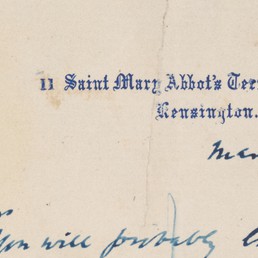 11 Saint Mary Abbot's Ter
Kensington.
Mar
You will probably